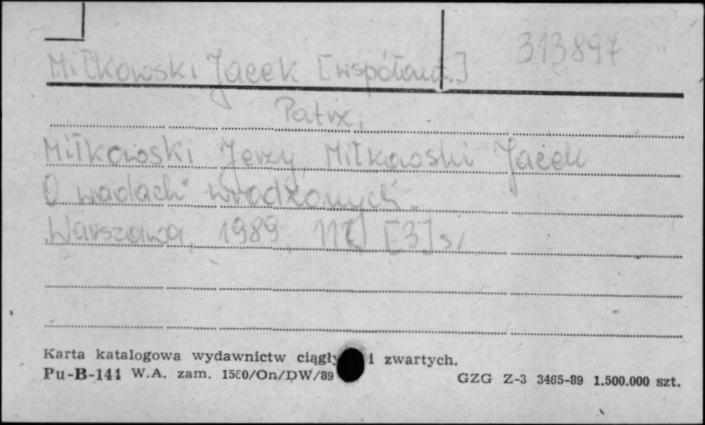 Miłkowski Jacek [współaut.] 313897
Patrz,
Miłkowski Jerzy, Miłkowski Jacek
O wadach wrodzonych.
Warszawa, 1989, [3] s,
Karta katalogowa wydawnictw ciągły i zwartych.
Pu-B-144 W.A. zam. 1560/On/DW/89 GZG Z-3 3465-89 1.500.000 szt.